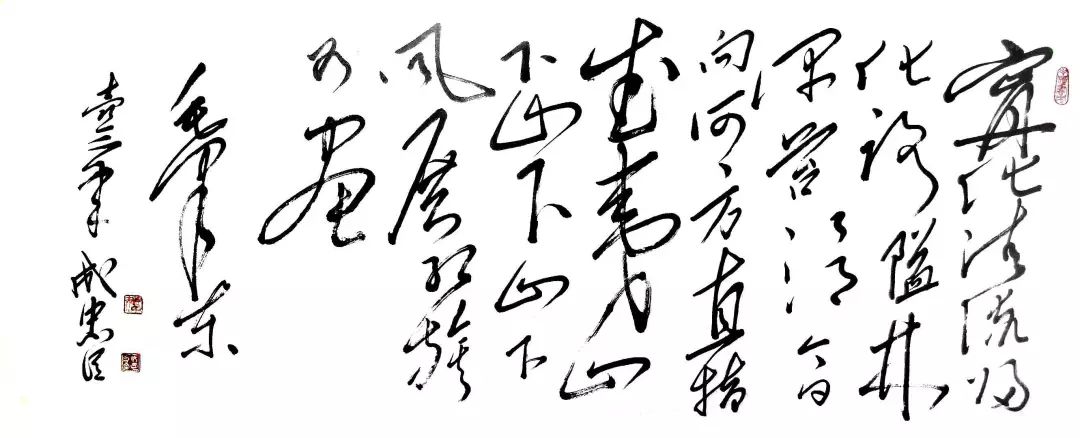 宁化清流归
化路隘林
深苔滑今日
向何方直指
武夷山
下山下山下
风展红旗
如画
毛泽东
壹三年 成忠臣